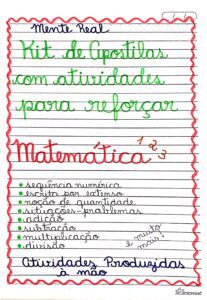 Mente Real
Kit de Apostilas
com atividades
para reforçar
Matemática 1 2 3
• sequência numérica
• escrita por extenso
• noção de quantidade
• situações-problemas
• adição
• subtração
• multiplicação
• divisão
e muito
mais!
Atividades Produzidas
à mão